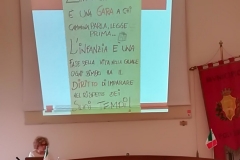 È UNA GARA A CHI
CAMMINA, PARLA, LEGGE...
PRIMA...
L'INFANZIA È UNA
FASE DELLA VITA NELLA QUALE
OGNI BAMBINO HA IL
DIRITTO DI IMPARARE
NEL RISPETTO DEI
SUOI TEMPI!